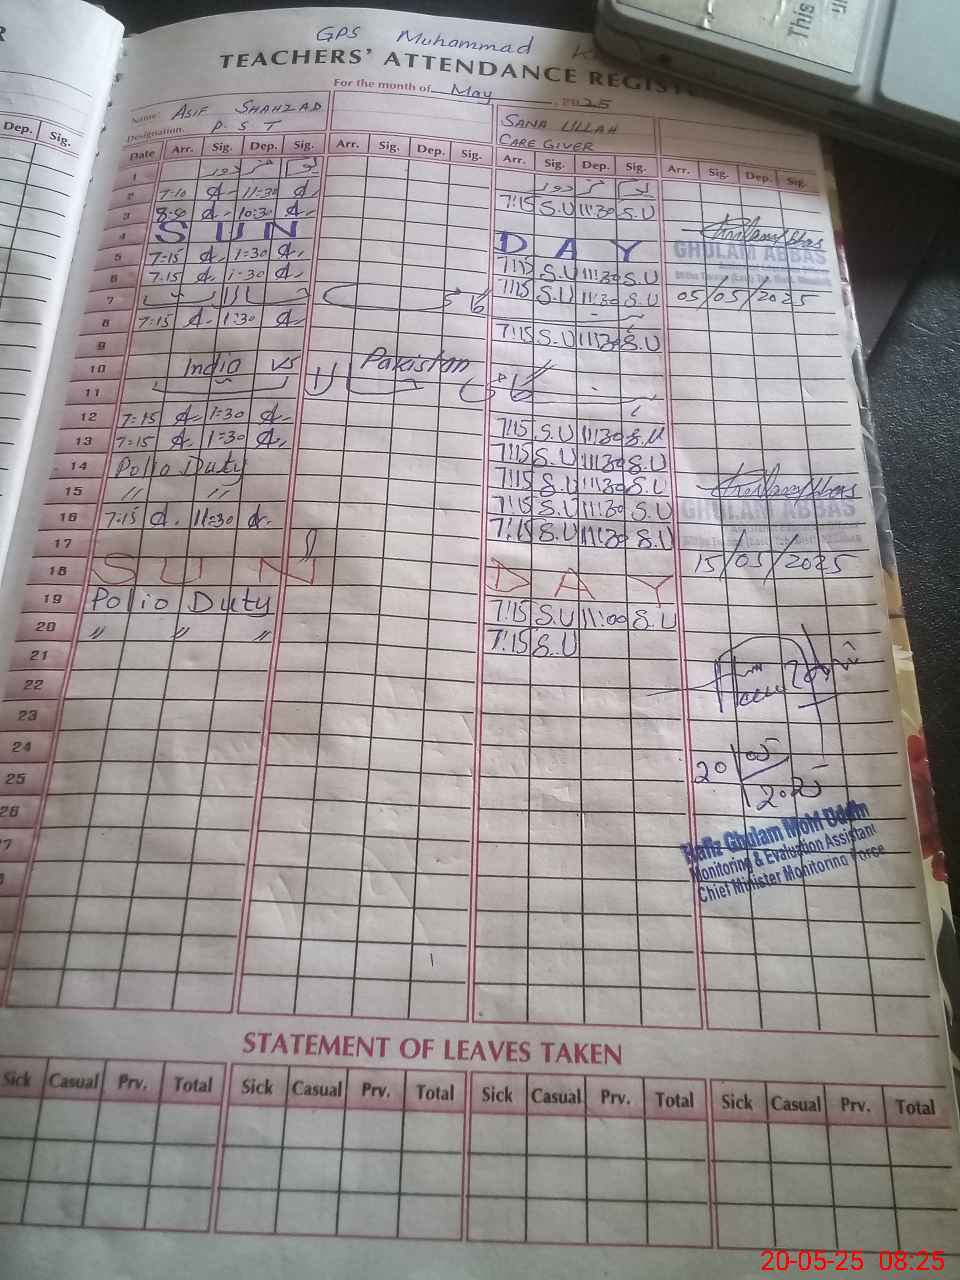 GPS Muhammad
TEACHERS' ATTENDANCE REGIS
For the month of May, 2025
Name: ASIF SHAHZAD
SANA ULLAH
Designation P.S.T
CARE GIVER
Dep. Sig.
Date Arr. Sig. Dep. Sig. Arr. Sig. Dep. Sig. Arr. Sig. Dep. Sig. Arr. Sig. Dep. Sig.
1
2 7-10 11-30 7:15 S.U 11:30 S.U
3 10:30
4 SUN DAY
GHULAM ABBAS
5 7-15 1-30 7:15 S.U 11:30 S.U
6 7-15 1-30 7:15 S.U 11:30 S.U
05/05/2025
7
8 7:15 1:30 7:15 S.U 11:30 S.U
9
10 India vs Pakistan
11
12 7:15 1:30 7:15 S.U 11:30 S.U
13 7-15 1-30 7:15 S.U 11:30 S.U
14 Polio Duty 7:15 S.U 11:30 S.U
15 〃 〃 7:15 S.U 11:30 S.U
GHULAM ABBAS
16 7:15 11:30 7:15 S.U 11:30 S.U
17
15/05/2025
18 SUN DAY
19 Polio Duty 7:15 S.U 11:00 S.U
20 〃 〃 〃 7:15 S.U
21
22
23
24
20/05/2025
25
26
Hafiz Ghulam Mohi Uddin
Monitoring & Evaluation Assistant
Chief Minister Monitoring Force
STATEMENT OF LEAVES TAKEN
Sick Casual Prv. Total Sick Casual Prv. Total Sick Casual Prv. Total Sick Casual Prv. Total
This
20-05-25 08:25